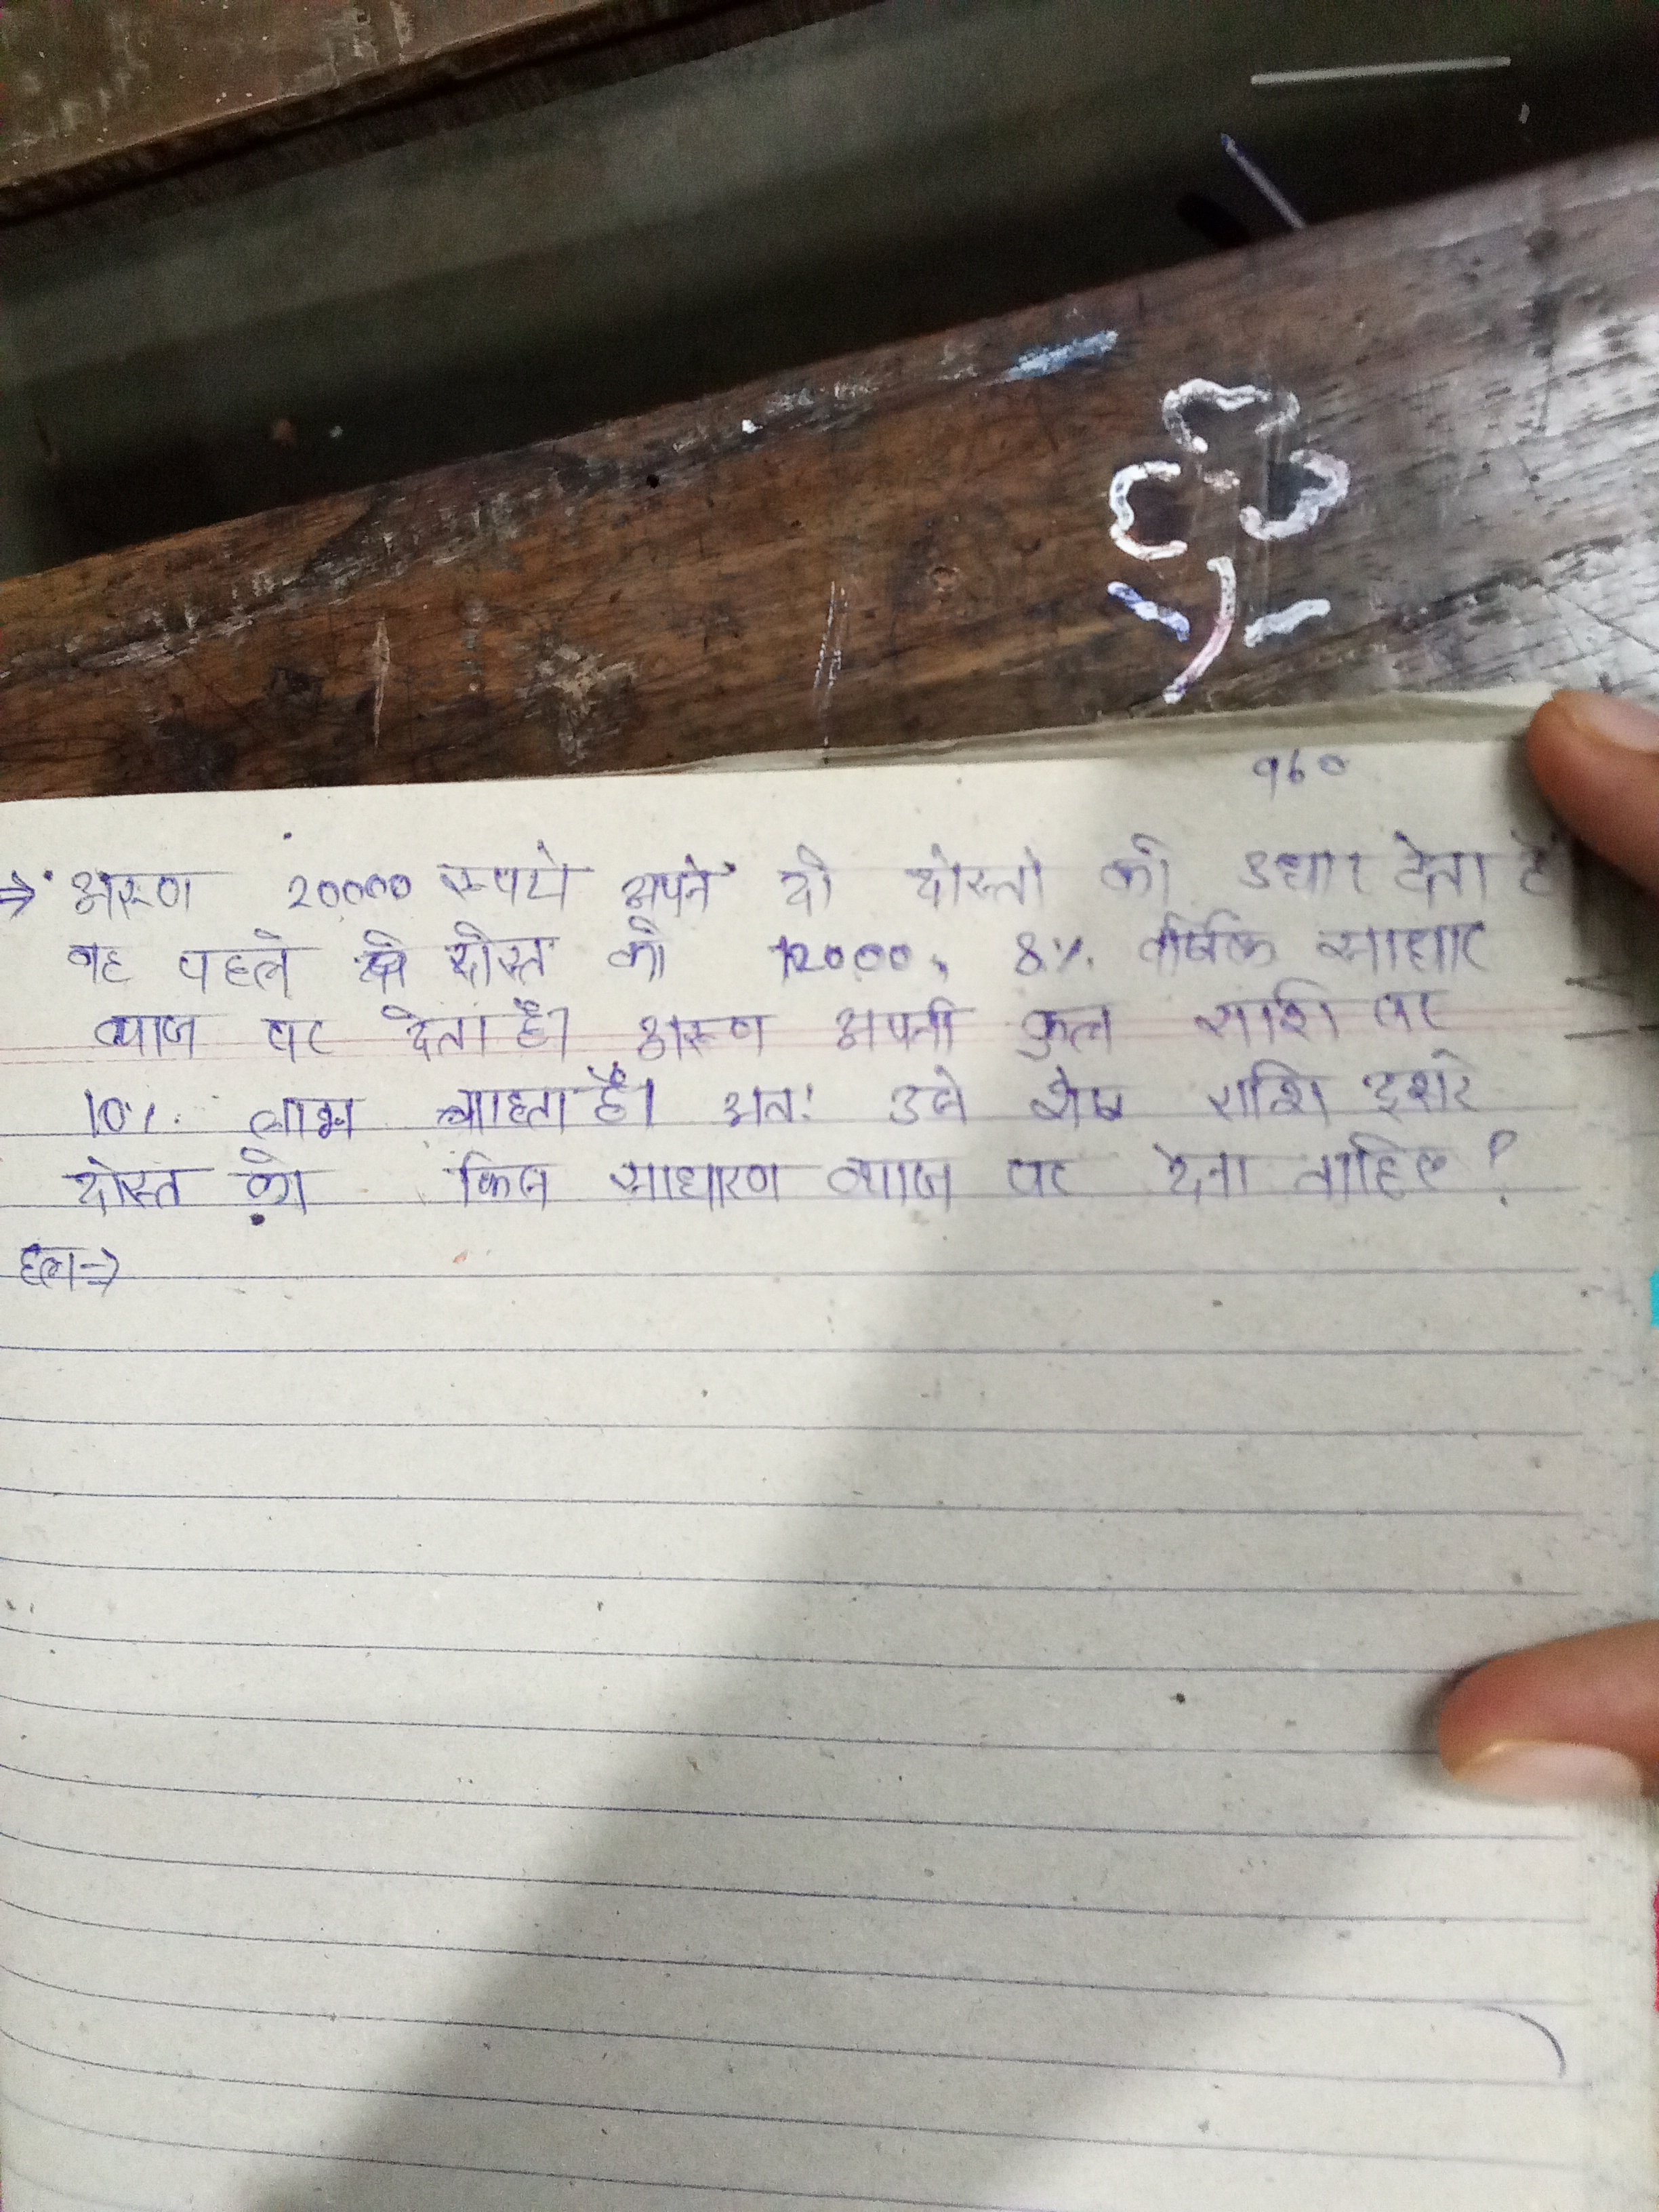 960
→ अरूण 20000 रूपये अपने दो दोस्तो को उधार देता है
वह पहले दोस्त को 12000, 8% वार्षिक साधार
ब्याज पर देता है। अरूण अपनी कुल राशि पर
10% लाभ चाहता है। अतः उसे शेष राशि दुसरे
दोस्त को किस साधारण ब्याज पर देना चाहिए ?
हल→